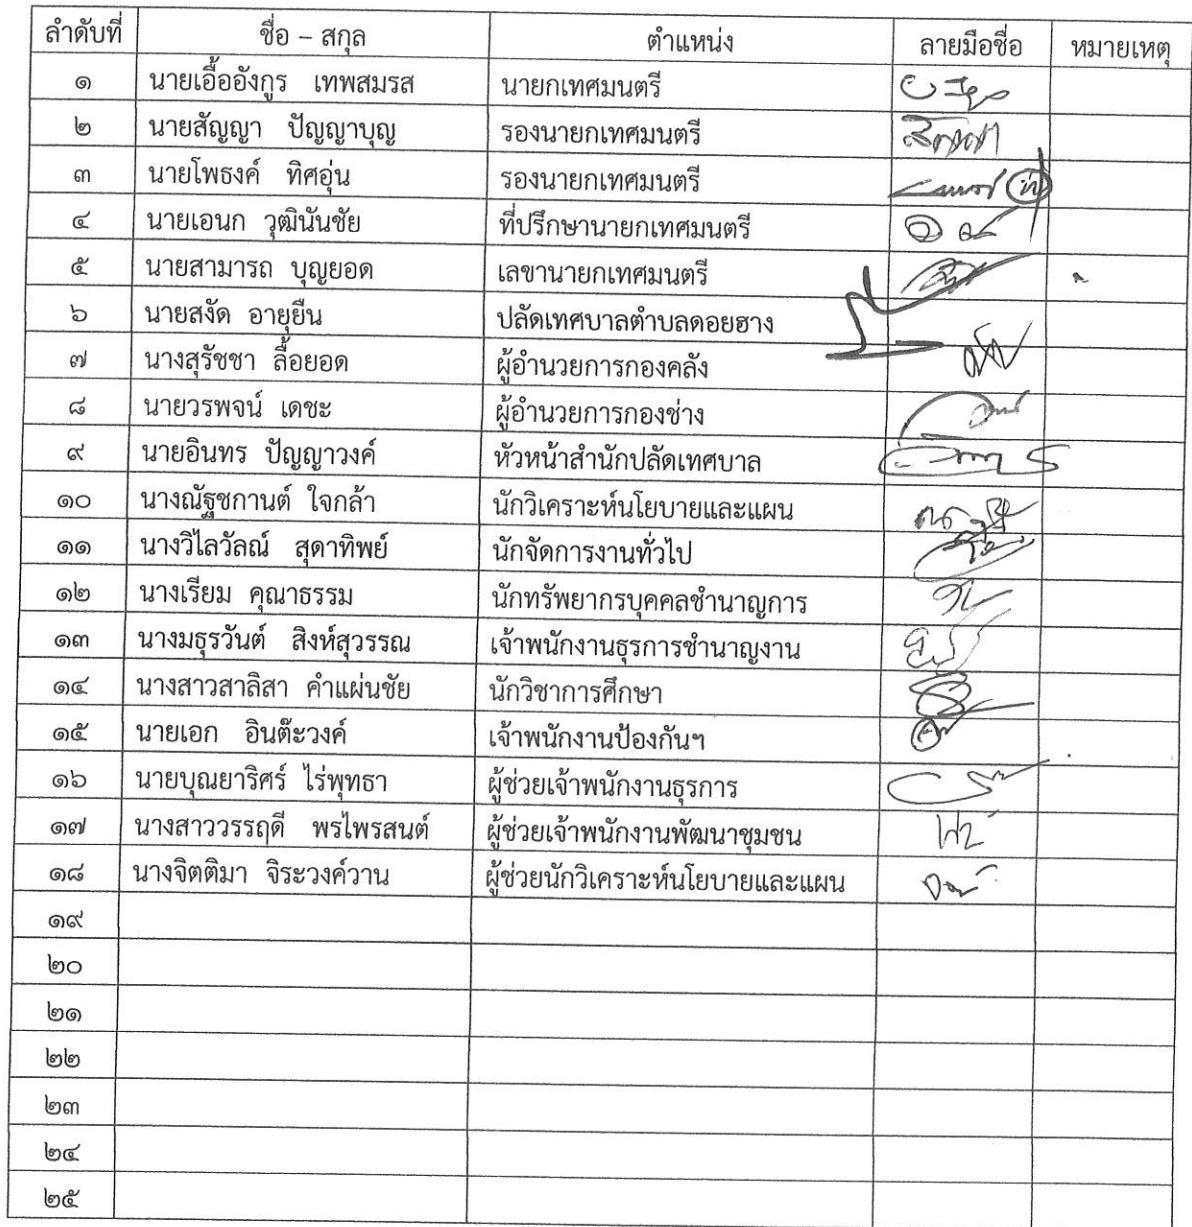 ลำดับที่ ชื่อ – สกุล ตำแหน่ง ลายมือชื่อ หมายเหตุ
๑ นายเอื้ออังกูร เทพสมรส นายกเทศมนตรี
๒ นายสัญญา ปัญญาบุญ รองนายกเทศมนตรี
๓ นายโพธงค์ ทิศอุ่น รองนายกเทศมนตรี
๔ นายเอนก วุฒินันชัย ที่ปรึกษานายกเทศมนตรี
๕ นายสามารถ บุญยอด เลขานายกเทศมนตรี
๖ นายสงัด อายุยืน ปลัดเทศบาลตำบลดอยฮาง
๗ นางสุรัชชา ลื้อยอด ผู้อำนวยการกองคลัง
๘ นายวรพจน์ เดชะ ผู้อำนวยการกองช่าง
๙ นายอินทร ปัญญาวงค์ หัวหน้าสำนักปลัดเทศบาล
๑๐ นางณัฐชกานต์ ใจกล้า นักวิเคราะห์นโยบายและแผน
๑๑ นางวิไลวัลณ์ สุดาทิพย์ นักจัดการงานทั่วไป
๑๒ นางเรียม คุณาธรรม นักทรัพยากรบุคคลชำนาญการ
๑๓ นางมธุรวันต์ สิงห์สุวรรณ เจ้าพนักงานธุรการชำนาญงาน
๑๔ นางสาวสาลิสา คำแผ่นชัย นักวิชาการศึกษา
๑๕ นายเอก อินต๊ะวงค์ เจ้าพนักงานป้องกันฯ
๑๖ นายบุณยาริศร์ ไร่พุทธา ผู้ช่วยเจ้าพนักงานธุรการ
๑๗ นางสาววรรฤดี พรไพรสนต์ ผู้ช่วยเจ้าพนักงานพัฒนาชุมชน
๑๘ นางจิตติมา จิระวงค์วาน ผู้ช่วยนักวิเคราะห์นโยบายและแผน
๑๙
๒๐
๒๑
๒๒
๒๓
๒๔
๒๕